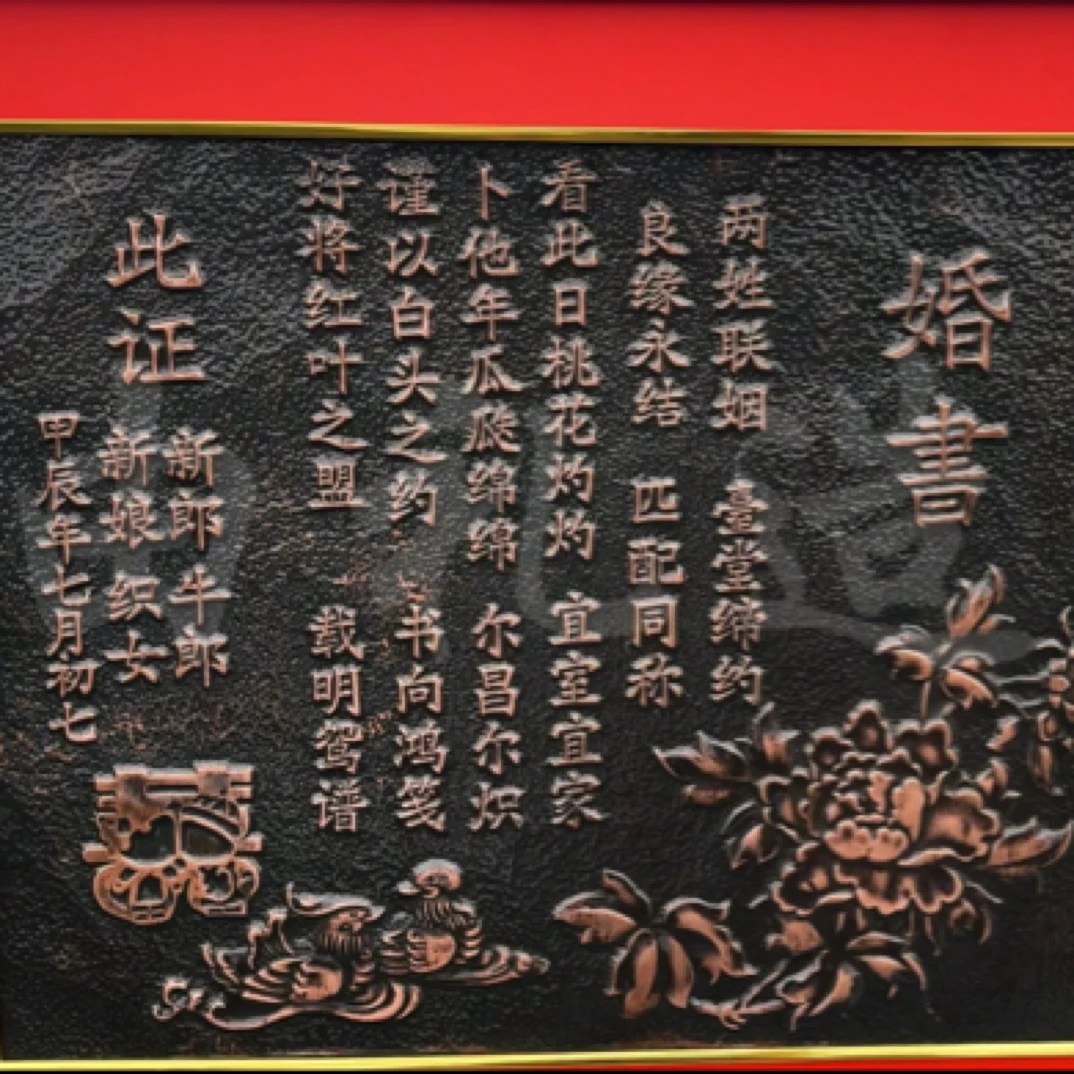 婚書
两姓联姻 臺堂缔约
良缘永结 匹配同称
看此日桃花灼灼 宜室宜家
卜他年瓜瓞绵绵 尔昌尔炽
谨以白头之约 书向鸿笺
好将红叶之盟 载明鸳谱
此证
新郎 牛郎
新娘 织女
甲辰年七月初七